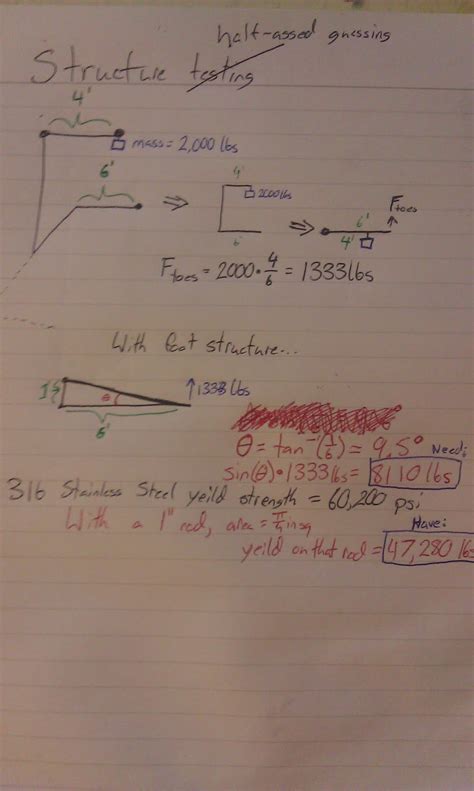 half-assed guessing
Structure testing
4'
mass = 2,000 lbs
6'
4'
2000lbs
6'
F toes
6'
4'
F toes = 2000 · 4/6 = 1333lbs
With foot structure...
1'
θ
1333 lbs
6'
θ = tan⁻¹(1/6) = 9.5°
Need:
sin(θ)·1333lbs = 8110 lbs
316 Stainless Steel yeild strength = 60,200 psi
With a 1" rod, area = π/4 in sq
Have:
yeild on that rod = 47,280 lbs